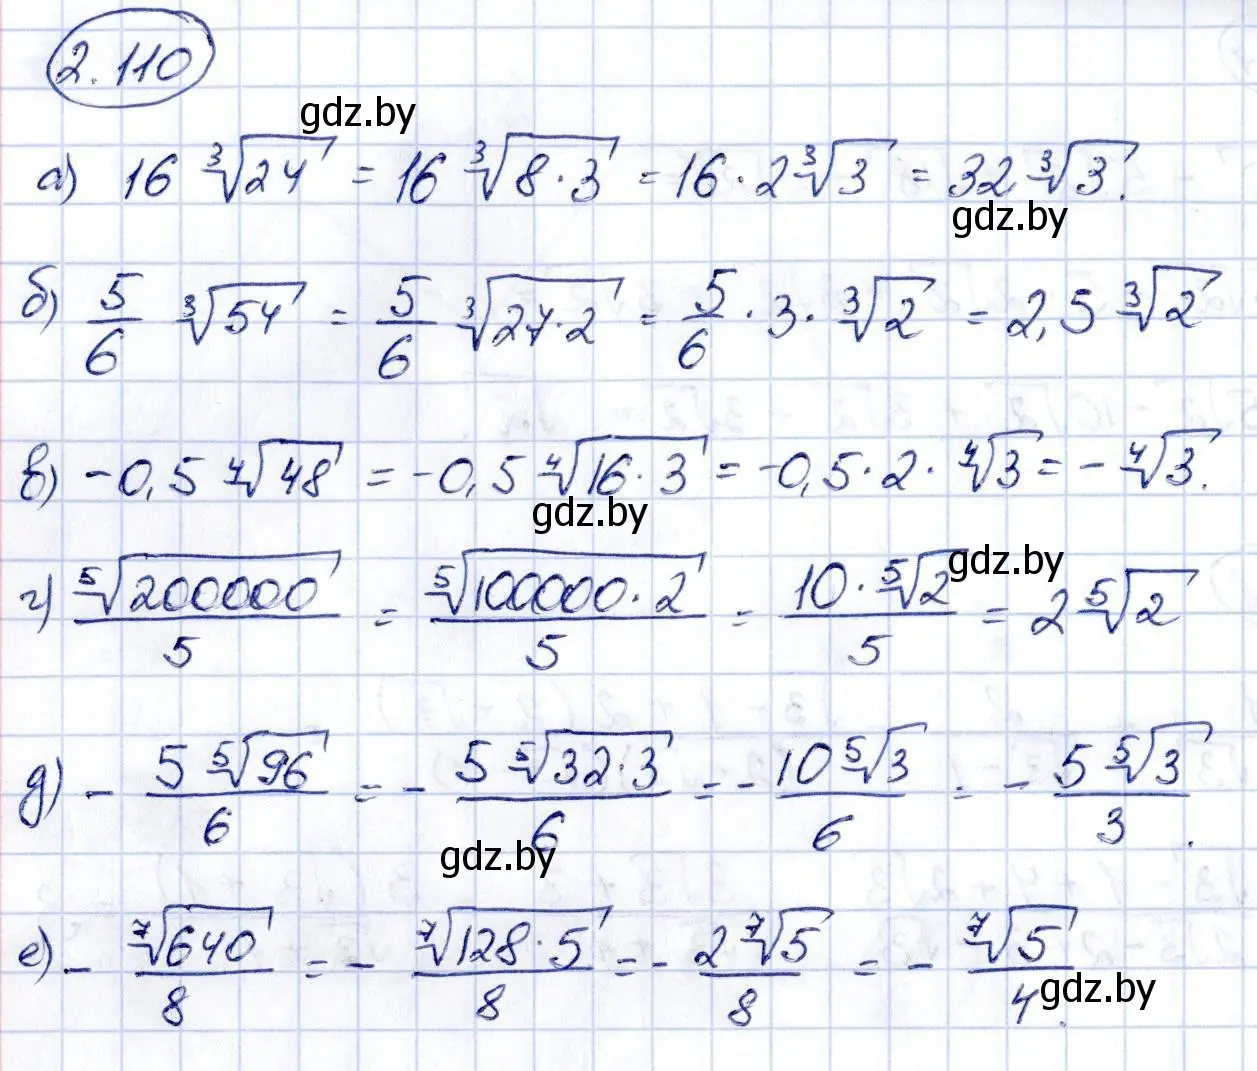 2.110
gdz.by
а) 16 ∛24 = 16 ∛(8·3) = 16·2∛3 = 32∛3.
gdz.by
б) 5/6 ∛54 = 5/6 ∛(27·2) = 5/6 · 3 · ∛2 = 2,5 ∛2
в) -0,5 ∜48 = -0,5 ∜(16·3) = -0,5·2·∜3 = -∜3.
gdz.by
gdz.by
г) ⁵√200000/5 = ⁵√(100000·2)/5 = 10·⁵√2/5 = 2⁵√2
д) - 5 ⁵√96/6 = - 5 ⁵√(32·3)/6 = - 10⁵√3/6 = - 5⁵√3/3.
gdz.by
е) - ⁷√640/8 = - ⁷√(128·5)/8 = - 2⁷√5/8 = - ⁷√5/4.
gdz.by